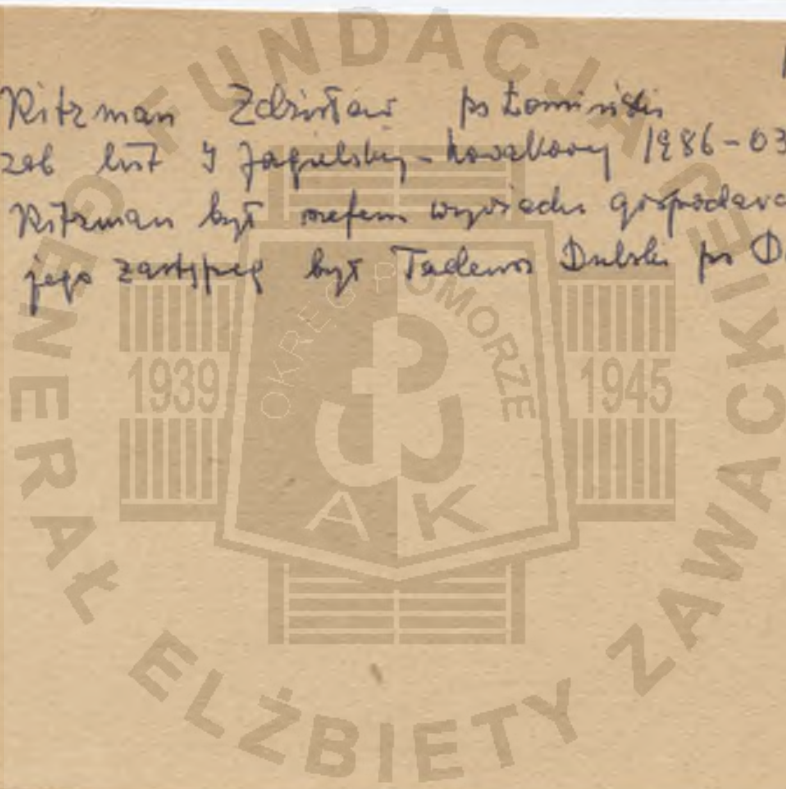 Ritzman Zdzisław ps Łomiński
zob list I Jagielskiej-Nowakowej 1986-03
Ritzman był szefem wywiadu gospodarc
jego zastępcą był Tadeusz Dulski ps D
FUNDACJA GENERAŁ ELŻBIETY ZAWACKIEJ
OKRĘG POMORZE
1939 1945
A K